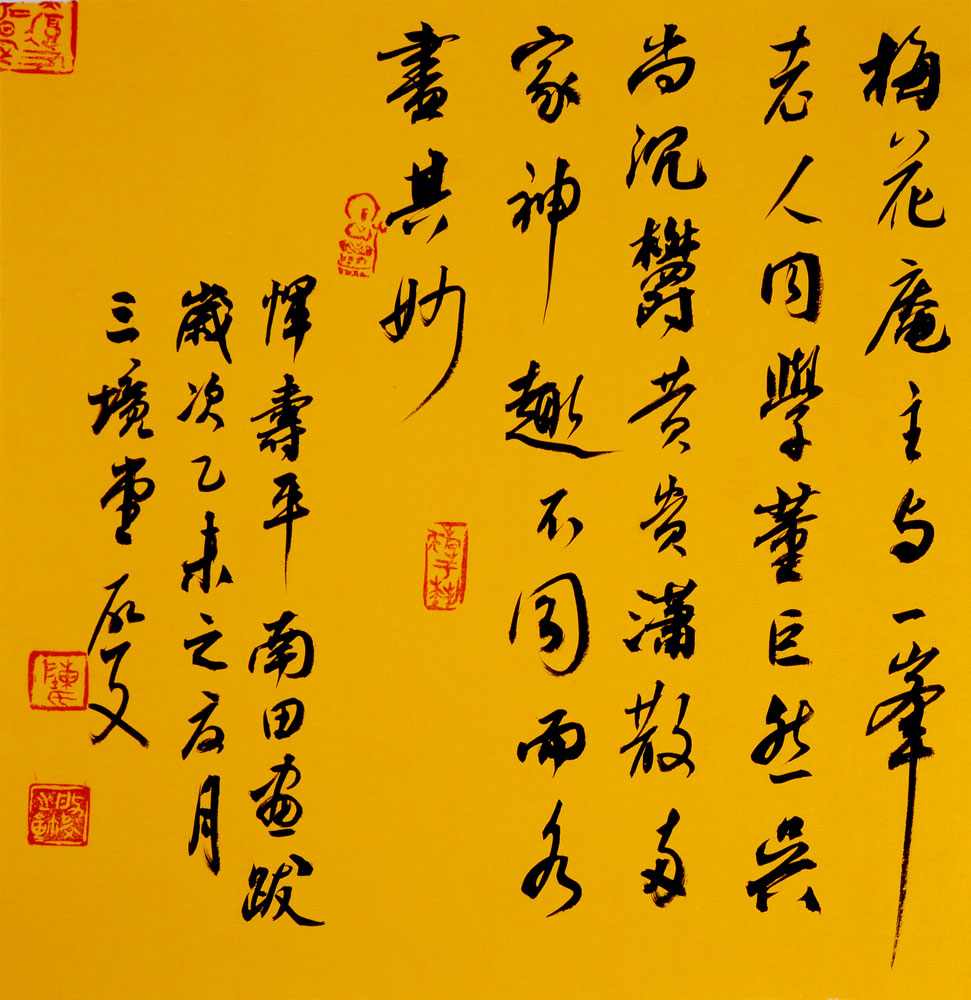 梅花庵主与一峯
老人同學董巨然吴
尚沉欝黄貴瀟散两
家神趣不同而各
盡其妙
惲壽平南田画跋
歲次乙未之夏月
三境堂
陳氏